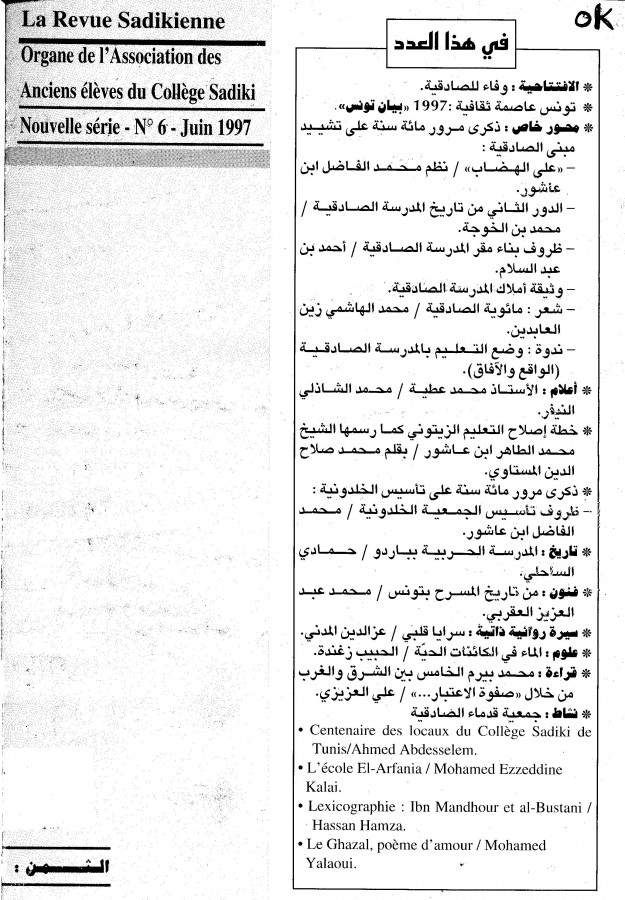 La Revue Sadikienne
Organe de l'Association des
Anciens élèves du Collège Sadiki
Nouvelle série - N° 6 - Juin 1997
الثمن :
OK
في هذا العدد
* الافتتاحية : وفاء للصادقية.
* تونس عاصمة ثقافية :1997 «بيان تونس».
* محور خاص : ذكرى مرور مائة سنة على تشييد
مبنى الصادقية :
– «على الهضاب» / نظم محمد الفاضل ابن
عاشور.
– الدور الثاني من تاريخ المدرسة الصادقية /
محمد بن الخوجة.
– ظروف بناء مقر المدرسة الصادقية / أحمد بن
عبد السلام.
– وثيقة أملاك المدرسة الصادقية.
– شعر : مائوية الصادقية / محمد الهاشمي زين
العابدين.
– ندوة : وضع التعليم بالمدرسة الصادقية
(الواقع والآفاق).
* أعلام : الأستاذ محمد عطية / محمد الشاذلي
النيفر.
* خطة إصلاح التعليم الزيتوني كما رسمها الشيخ
محمد الطاهر ابن عاشور / بقلم محمد صلاح
الدين المستاوي.
* ذكرى مرور مائة سنة على تأسيس الخلدونية :
– ظروف تأسيس الجمعية الخلدونية / محمد
الفاضل ابن عاشور.
* تاريخ : المدرسة الحربية بباردو / حمادي
الساحلي.
* فنون : من تاريخ المسرح بتونس / محمد عبد
العزيز العقربي.
* سيرة روائية ذاتية : سرايا قلبي / عزالدين المدني.
* علوم : الماء في الكائنات الحيّة / الحبيب زغندة.
* قراءة : محمد بيرم الخامس بين الشرق والغرب
من خلال «صفوة الاعتبار...» / علي العزيزي.
* نشاط : جمعية قدماء الصادقية
• Centenaire des locaux du Collège Sadiki de
Tunis/Ahmed Abdesselem.
• L'école El-Arfania / Mohamed Ezzeddine
Kalai.
• Lexicographie : Ibn Mandhour et al-Bustani /
Hassan Hamza.
• Le Ghazal, poème d'amour / Mohamed
Yalaoui.